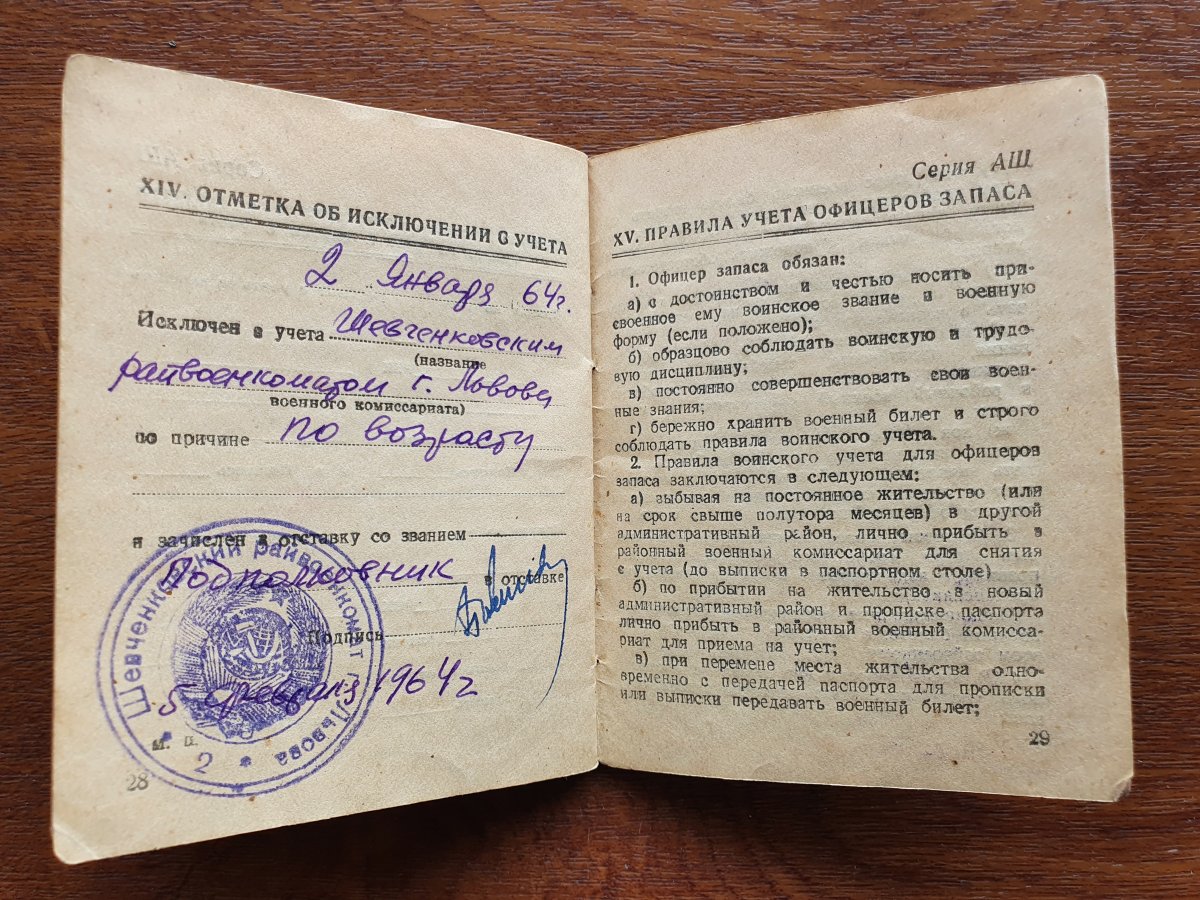 XIV. ОТМЕТКА ОБ ИСКЛЮЧЕНИИ С УЧЕТА
2 Января 64г.
Исключен с учета Шевченковским
(название
райвоенкоматом г. Львова
военного комиссариата)
по причине по возрасту
и зачислен в отставку со званием
Подполковник в отставке
Подпись
5 февраля 1964г
М. П.
Шевченковский райвоенкомат г. Львова
* 2 *
28
Серия АШ
XV. ПРАВИЛА УЧЕТА ОФИЦЕРОВ ЗАПАСА
1. Офицер запаса обязан:
а) с достоинством и честью носить при-
своенное ему воинское звание и военную
форму (если положено);
б) образцово соблюдать воинскую и трудо-
вую дисциплину;
в) постоянно совершенствовать свои воен-
ные знания;
г) бережно хранить военный билет и строго
соблюдать правила воинского учета.
2. Правила воинского учета для офицеров
запаса заключаются в следующем:
а) выбывая на постоянное жительство (или
на срок свыше полутора месяцев) в другой
административный район, лично прибыть в
районный военный комиссариат для снятия
с учета (до выписки в паспортном столе)
б) по прибытии на жительство в новый
административный район и прописке паспорта
лично прибыть в районный военный комисса-
риат для приема на учет;
в) при перемене места жительства одно-
временно с передачей паспорта для прописки
или выписки передавать военный билет;
29